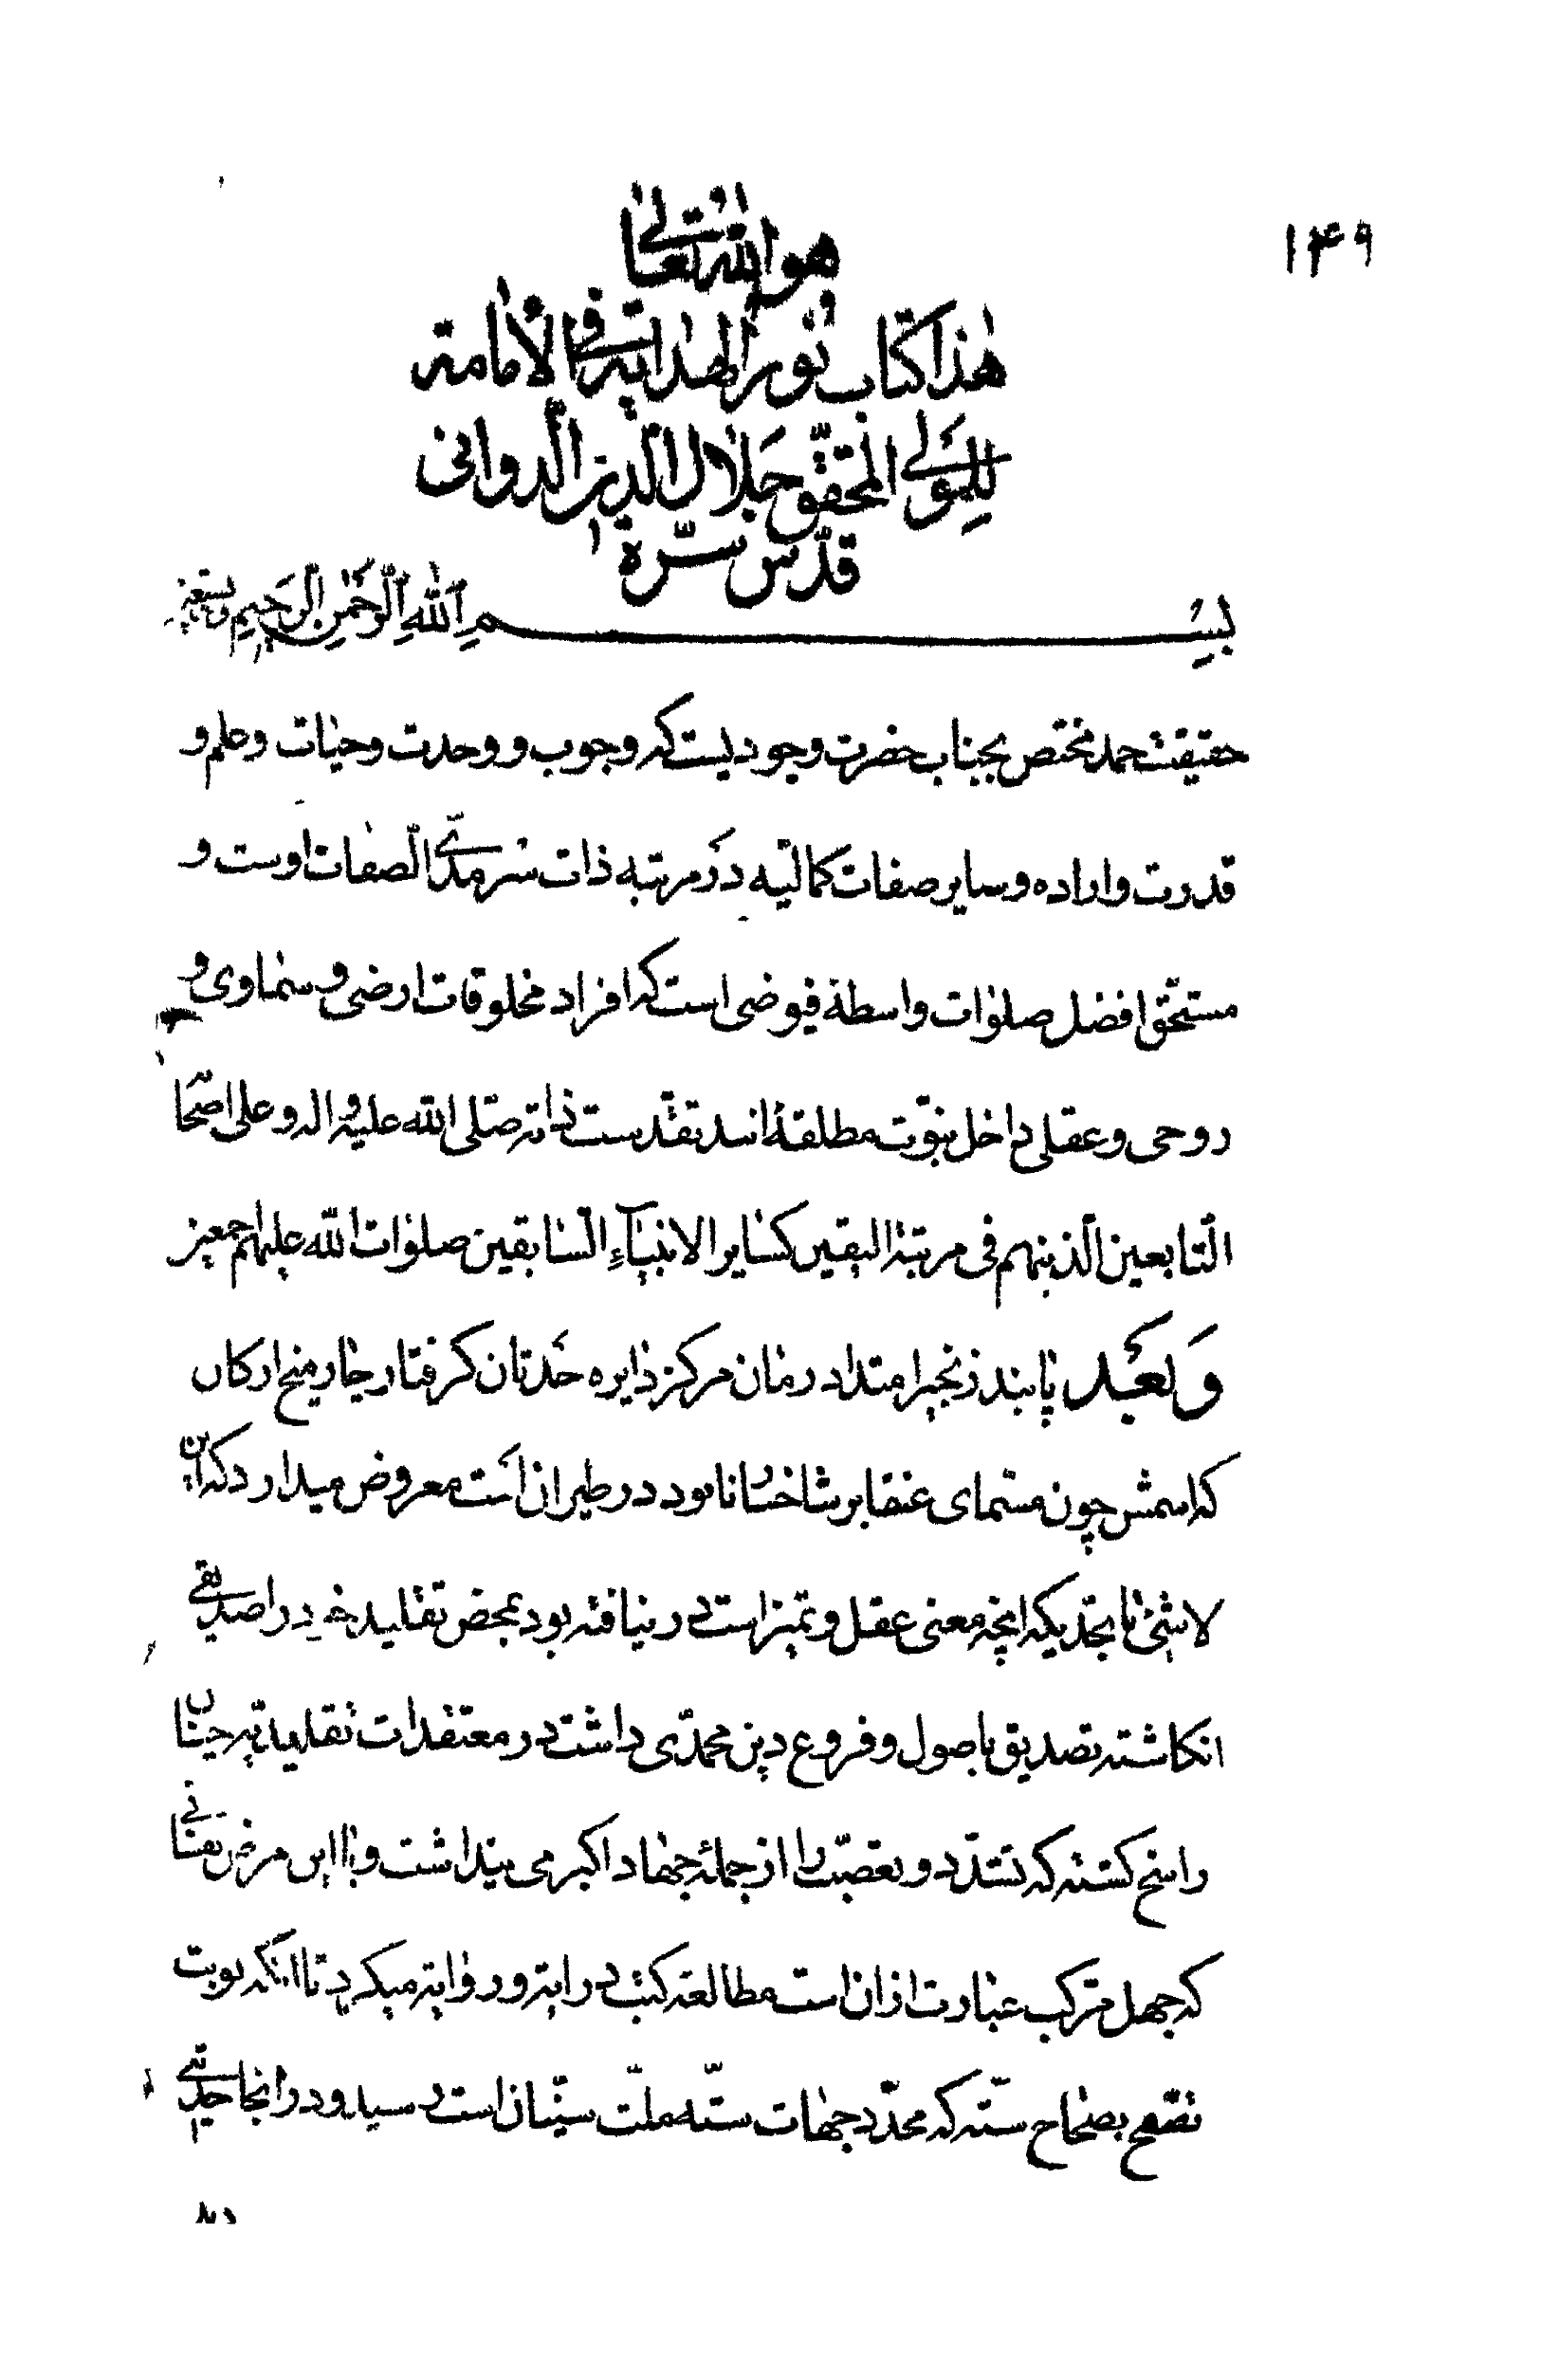 ۱۴۹
هو الله تعالی
هٰذا کتاب نور الهدایة فی الأمامة
للمولی المحقق جلال الدین الدوانی
قدّس سرّه
بسم الله الرحمن الرحیم وبه نستعین
حقیقت حمد مختص بجناب حضرت وجودیست که وجوب و وحدت وحیات وعلم و
قدرت واراده وسایر صفات کمالیّه در مرتبه ذات سرمدیّ الصفات اوست و
مستحقّ افضل صلوات واسطهٔ فیوضی است که افراد مخلوقات ارضی و سماوی و
روحی و عقلی داخل نبوّت مطلقهٔ اند تقدّست ذاته صلّی الله علیه و اله و علی اصحا
التابعین الّذینهم فی مرتبة الیقین کسایر الانبیآءِ السّابقین صلوات الله علیهم اجمعین
وَبَعد پابند زنجیر امتداد زمان مرکز دایره حدثان کرفتار چار میخ ارکان
که اسمش چون مسمّای عنقا بر شاخسار نابود در طیران است معروض میدارد که این
لاشئ تا بحدّیکه انچه معنی عقل و تمیز است درنیافته بود بمحض تقلید خود را صدیقی
انکاشته تصدیق باصول و فروع دین محمدّی داشت در معتقدات تقلیدیّه چنان
راسخ کشته که تشدّد و تعصّب را از جملهٔ جهاد اکبر می پنداشت و با این مرض نفسانی
که جهل مرکّب عبارت از ان است مطالعهٔ کتب درایة و روایة میکرد تا انکه نوبت
تصفّح بصحاح ستّه که محدّد جهات ستّه ملّت سنّیان است رسید و در انجا حدیثی
دید